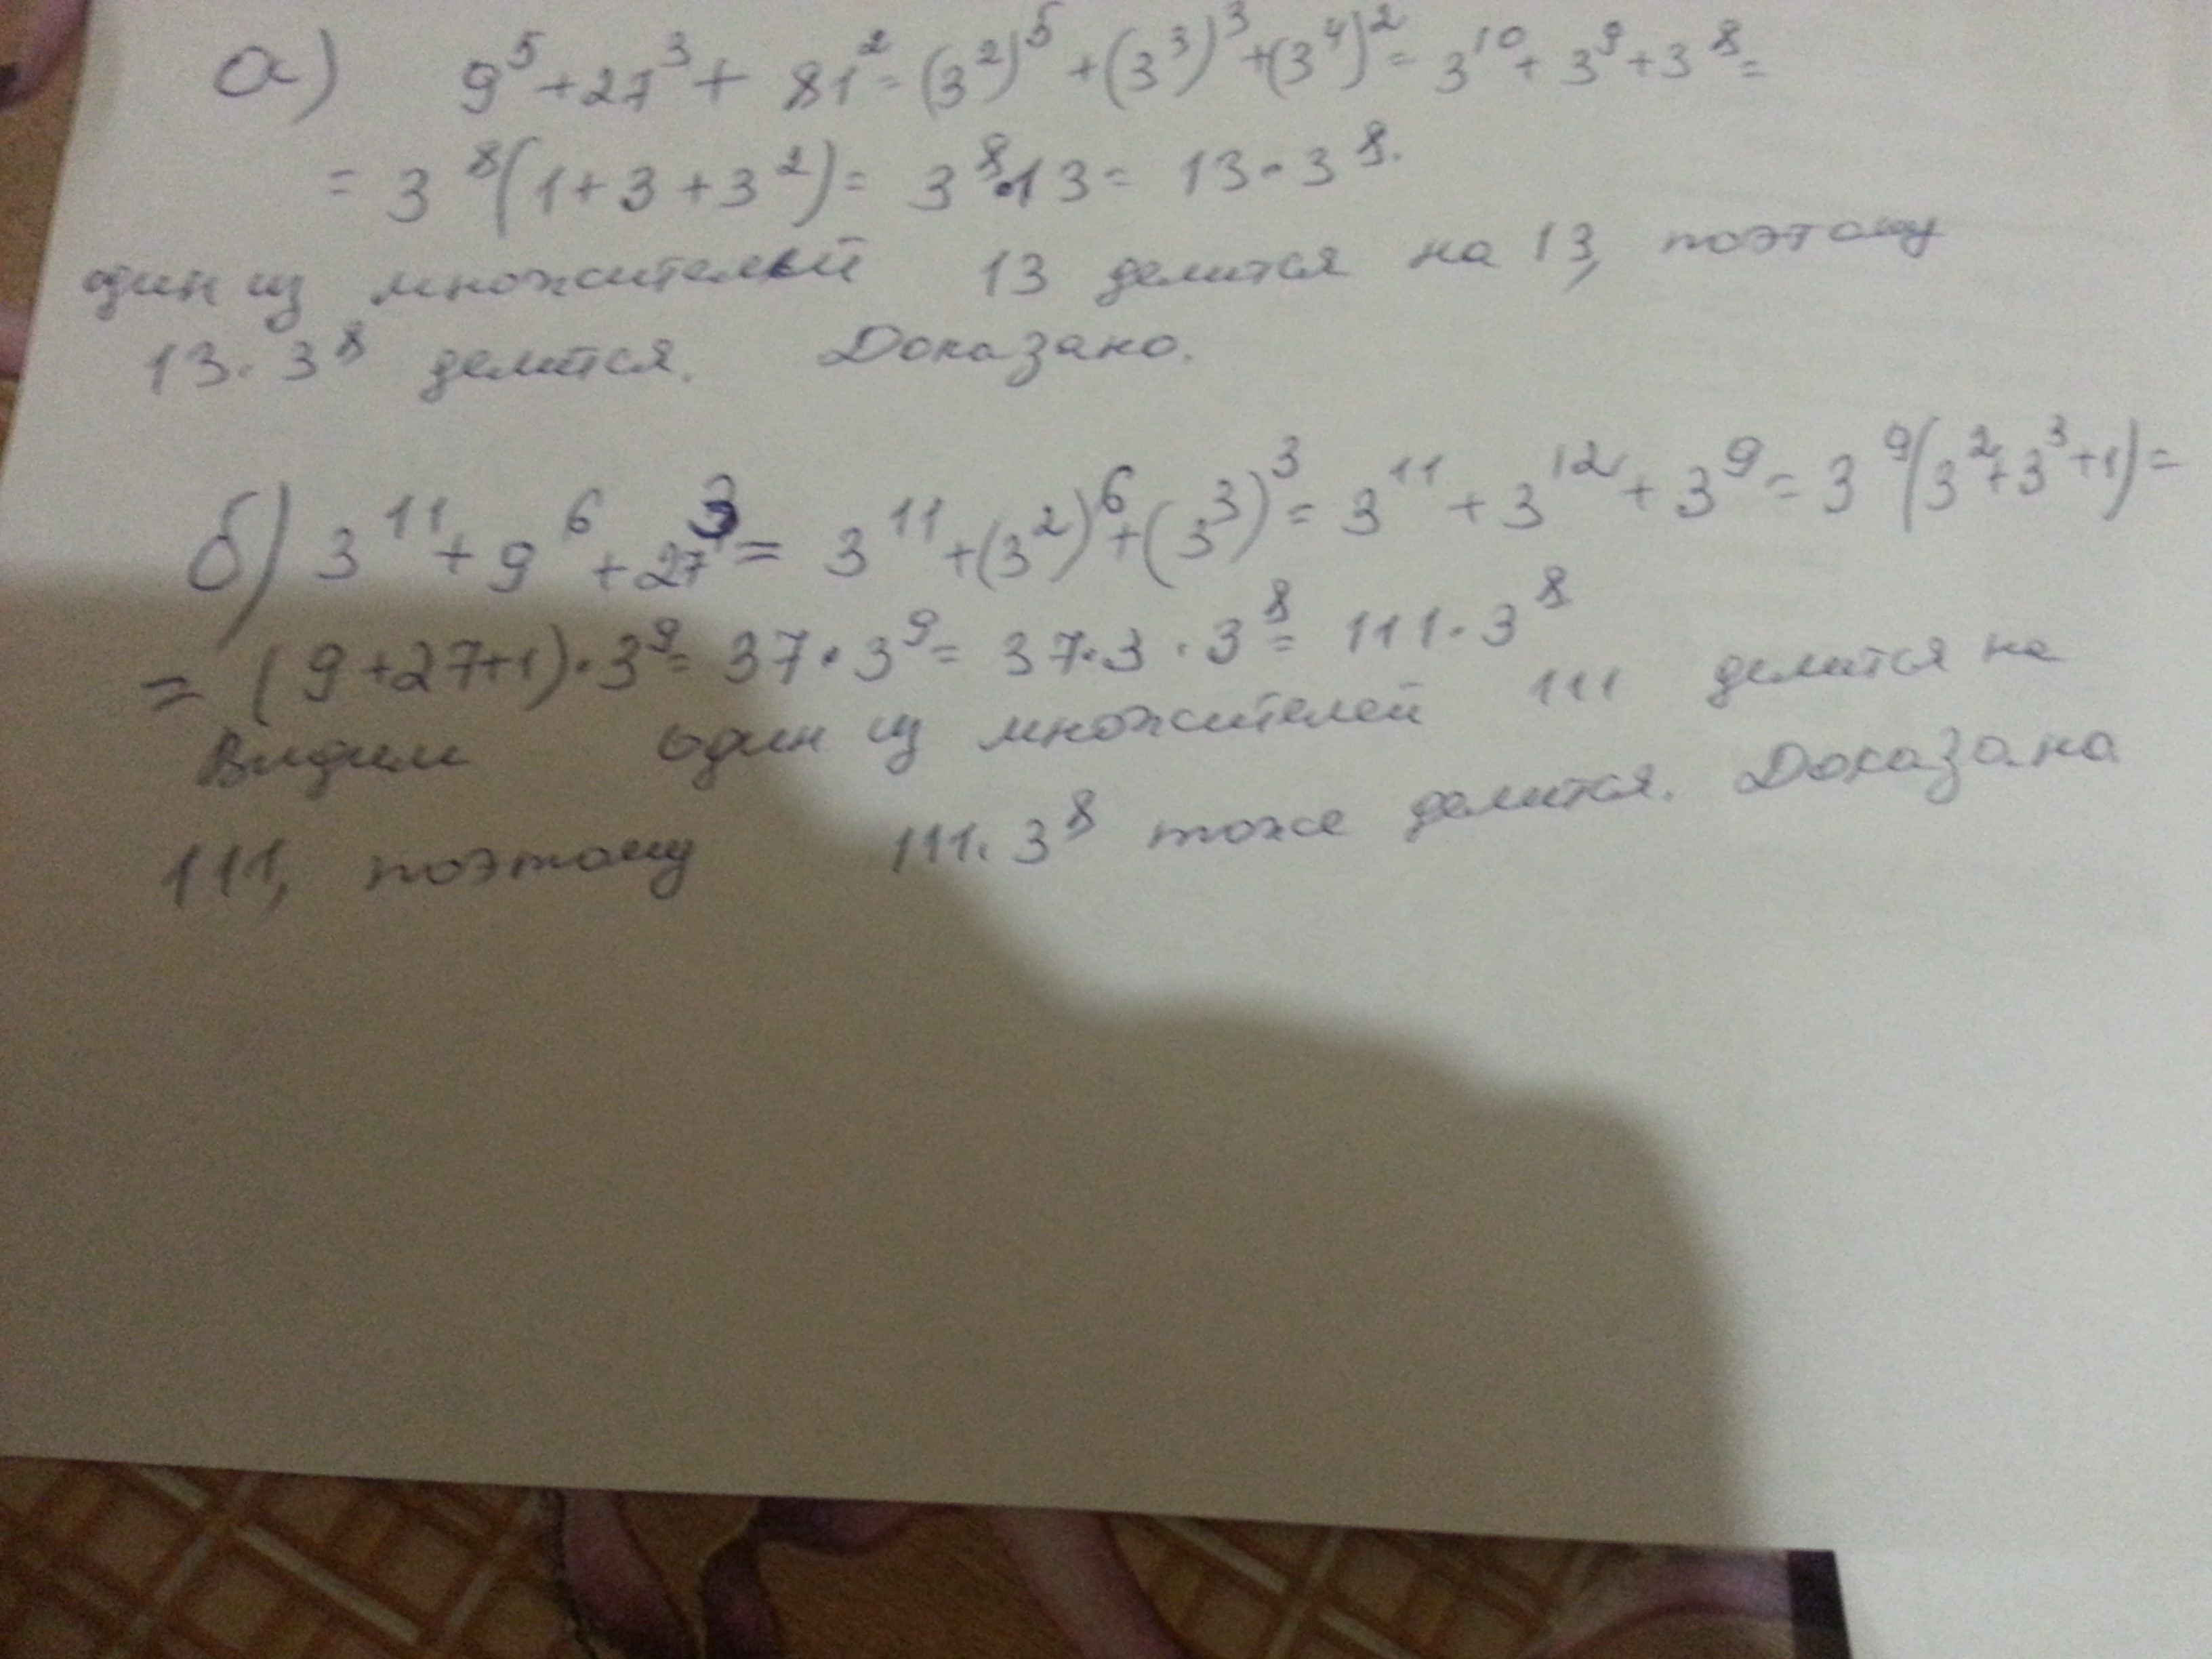 а) 9⁵ + 27³ + 81² = (3²)⁵ + (3³)³ + (3⁴)² = 3¹⁰ + 3⁹ + 3⁸ =
= 3⁸(1 + 3 + 3²) = 3⁸·13 = 13·3⁸.
один из множителей 13 делится на 13, поэтому
13·3⁸ делится. Доказано.
б) 3¹¹ + 9⁶ + 27³ = 3¹¹ + (3²)⁶ + (3³)³ = 3¹¹ + 3¹² + 3⁹ = 3⁹(3² + 3³ + 1) =
= (9 + 27 + 1)·3⁹ = 37·3⁹ = 37·3·3⁸ = 111·3⁸
Видим один из множителей 111 делится на
111, поэтому 111·3⁸ тоже делится. Доказано